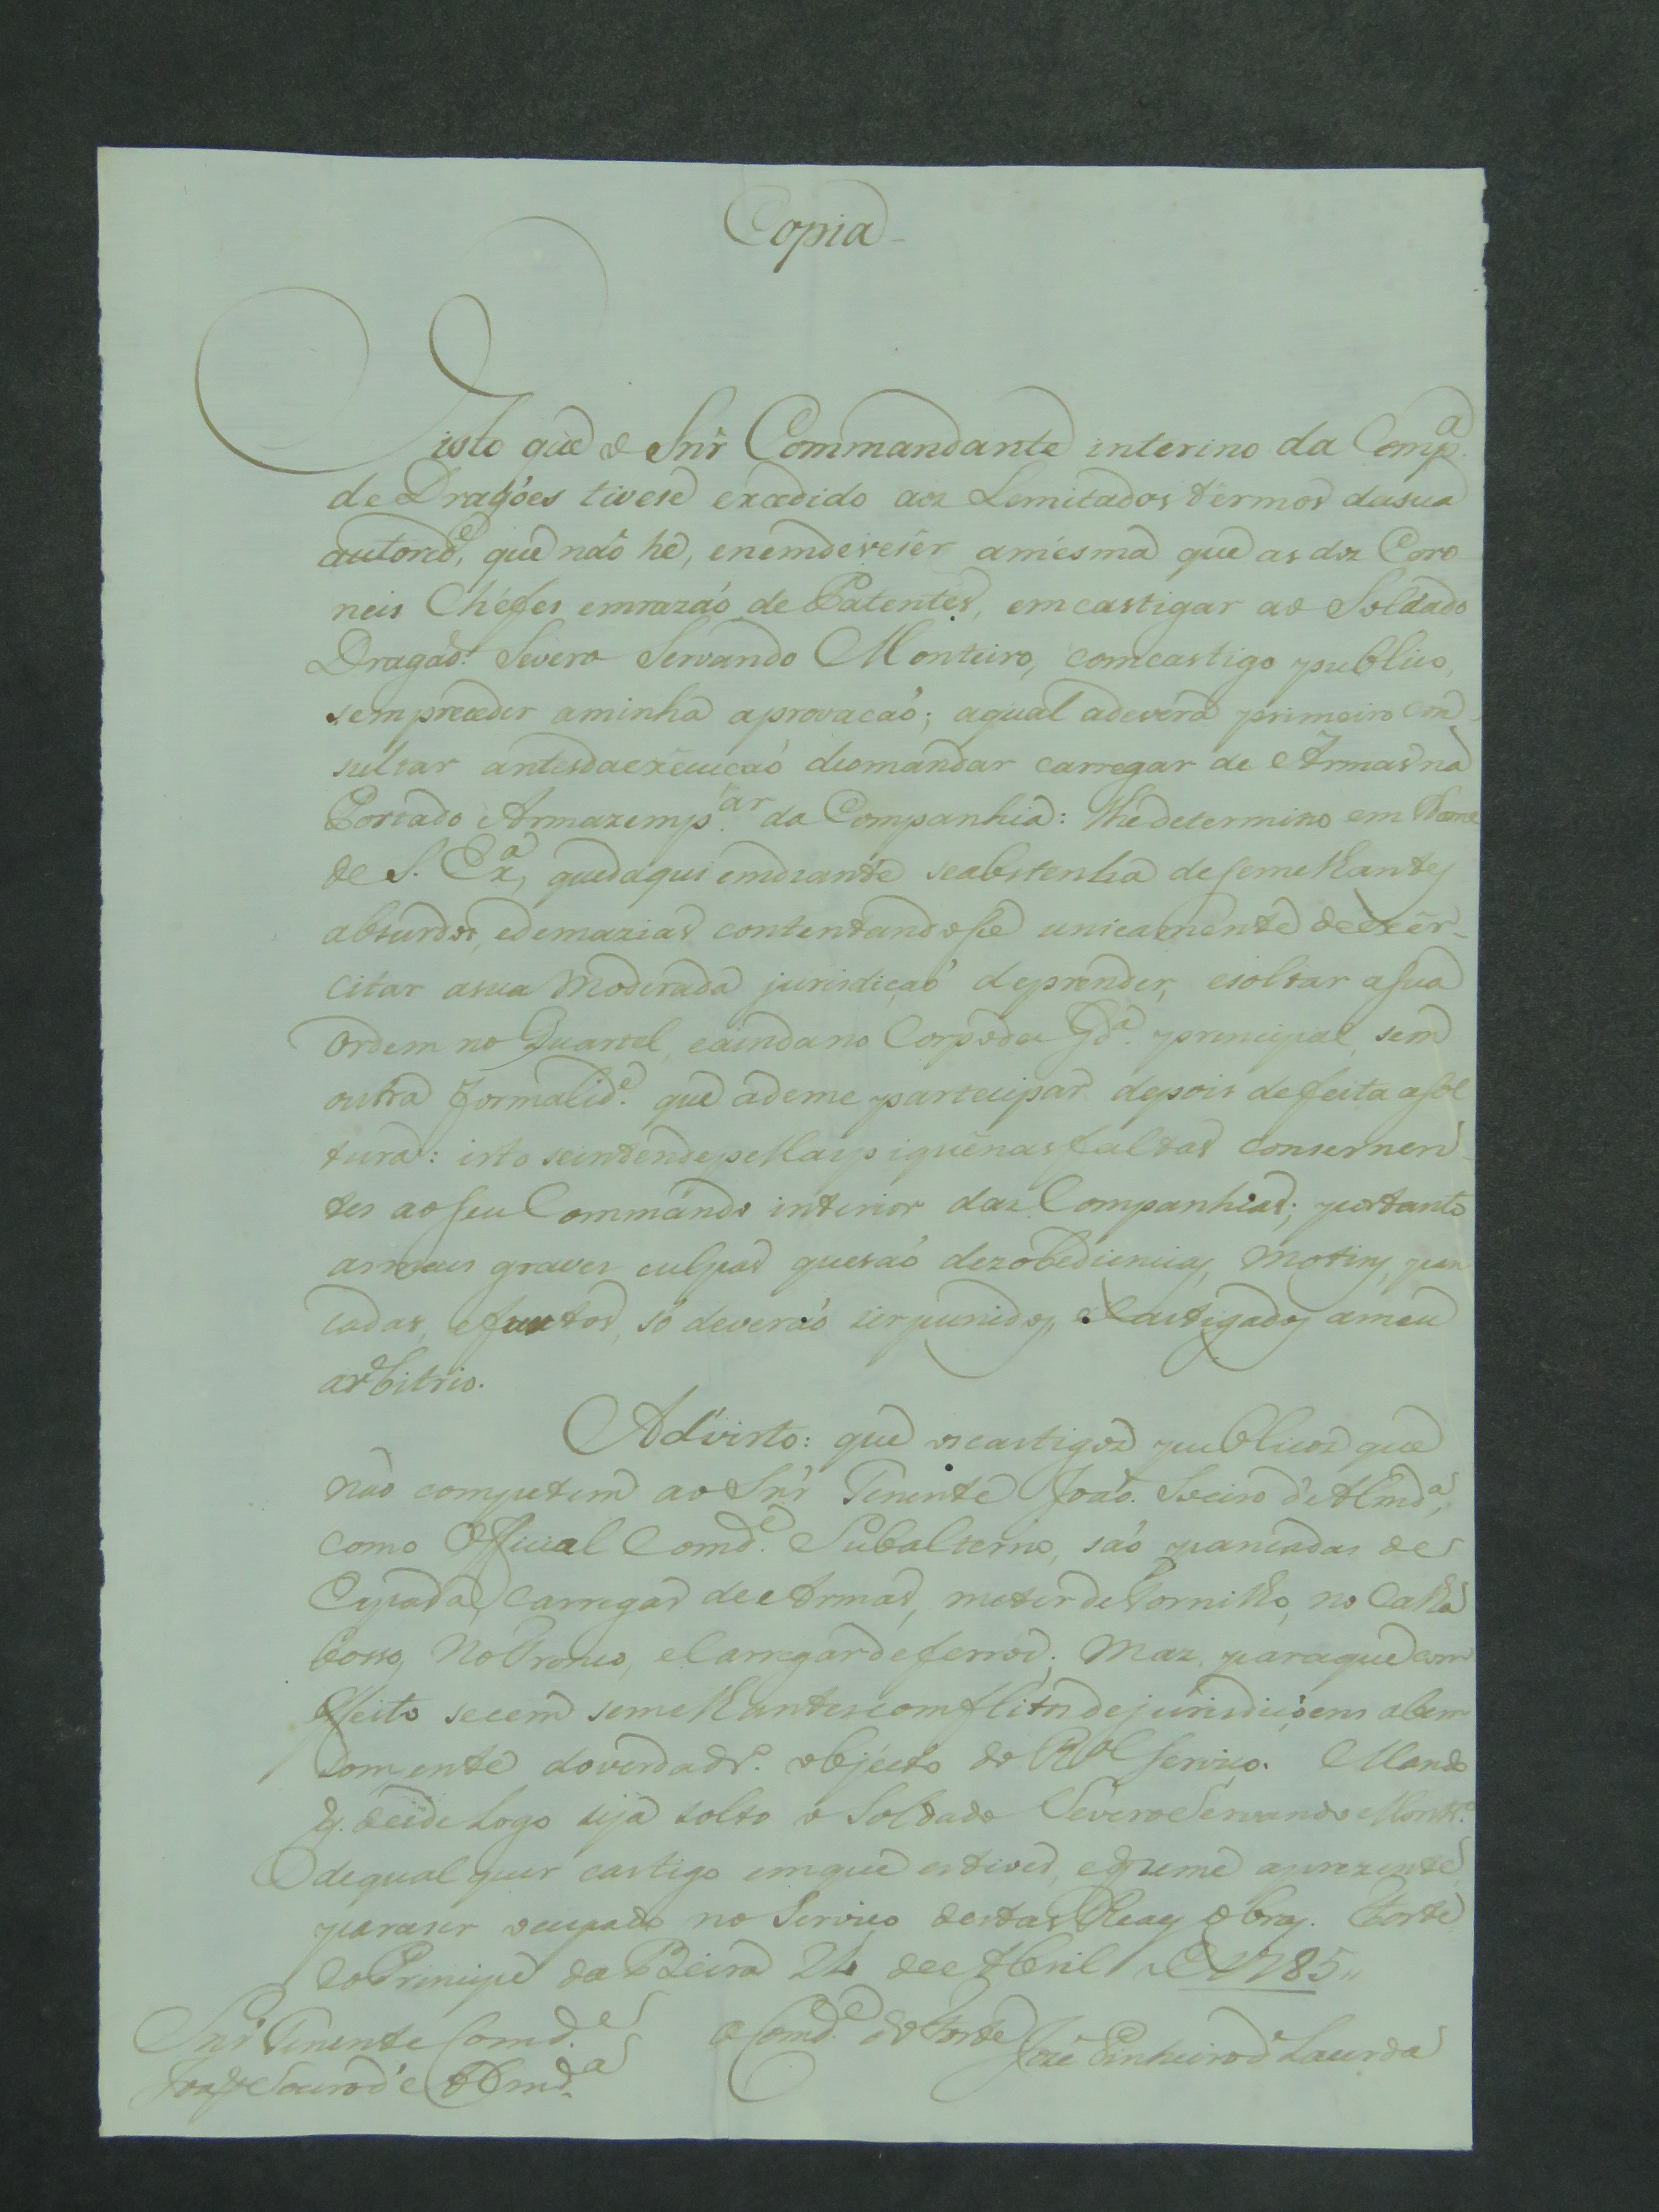 Copia
Visto que o Snr̃ Commandante interino da Comp.ª
de Dragões tivese excedido aoz Lemitados termos dasua
autorid.e, que naõ he, enemdeveser amesma que as doz Coro
neis Chéfes emrazaõ de Patentes, emcastigar ao Soldado
Dragaõ: Severo Servando Monteiro, comcastigo publico,
sempreceder aminha aprovacaõ; aqual adeverá primeiro con
sultar antesdaexecuçaõ deomandar carregar de Armas na
Portado Armazemp.ar da Companhia: lhedetermino em Nome
de S. Ex.ª, quedaqui emdiante seabstenha desemelhantes
absurdos, edemazias contentandose unicamente deexer-
citar asua Moderada jurisdicaõ deprender, esoltar asua
Ordem no Quartel, eaindano Corpoda Gd.ª principal, sem
outra formalid.e que ademe partecipar depois defeita asol
tura: isto seintendepellasp iquenasfaltas consernen
tes aoseu Commando interior daz Companhias; portanto
asmais graves culpas quesaõ dezobediencias, Motins, pan
cadas, efurtos, só deveraõ serpunidos, eCastigados ameu
arbitrio.
Advirto: que oscastigos publicos que
naõ competem ao Snr̃ Tenente Joaõ Soeiro d'Almd.ª,
como Official Comd.e Subalterno, saõ pancadas de
Espada, Carregar de Armas, meter deTornilho, no Calla
bosso, NoTronco, eCarregardeferros; Maz, paraque com
effeito secem semelhantescomflitosdejurisdiçoens abem
somente doverdadr.º objecto do R.ol servico. Mando
q. desde Logo seja solto o Soldado Severo Servando Montr.º
dequal quer castigo emque estiver, eq̃ seme aprezente
paraser ocupado no Servico destas Reaes obras. Forte
do Principe da Beira 24 de Abril de 1785,,
Snr̃ Tenente Comd.e O Comd.e do Forte Jozé Pinheiro de Lacerda
Joaõ Soeiro d'Almd.ª